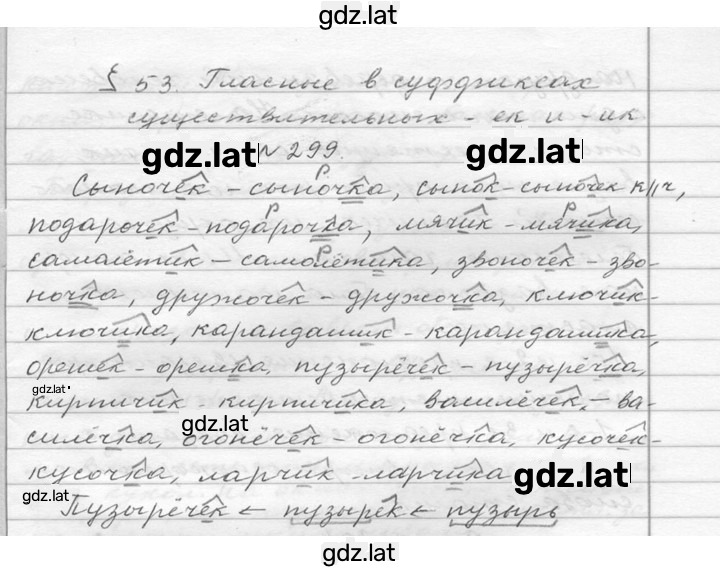 gdz.lat
§ 53. Гласные в суффиксах
существительных -ек и -ик
gdz.lat № 299. gdz.lat
Сыночек - сыночка, сынок-сыночек к//ч,
подарочек - подарочка, мячик - мячика,
самолётик - самолётика, звоночек - зво-
ночка, дружочек - дружочка, ключик-
ключика, карандашик - карандашика,
орешек - орешка, пузырёчек - пузырёчка,
gdz.lat
кирпичик - кирпичика, василёчек, - ва-
gdz.lat
силёчка, огонёчек - огонёчка, кусочек-
кусочка, ларчик - ларчика
gdz.lat
gdz.lat
Пузырёчек ← пузырёк ← пузырь
gdz.lat